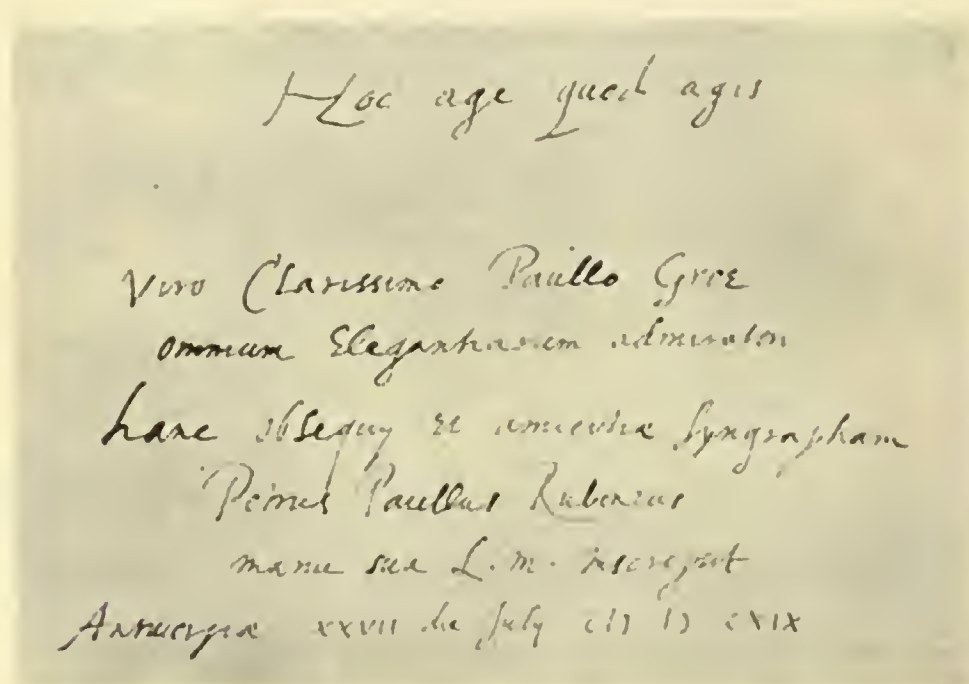 Hoc age quod agis
Viro Clarissimo Paullo Grœ
omnium Elegantiarum admiratori
hanc obsequy et amicitiæ syngrapham
Petrus Paullus Rubenius
manu sua L. m. inscripsit
Antuerpiæ xxvii die July CIƆ IƆ CXIX